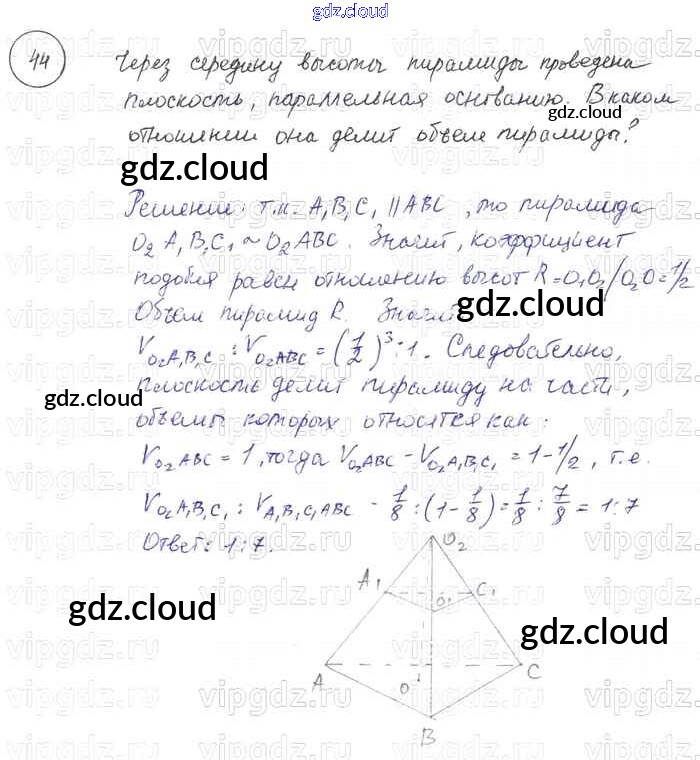 gdz.cloud
44
Через середину высоты пирамиды проведена
плоскость, параллельная основанию. В каком
gdz.cloud
отношении она делит объем пирамиды?
gdz.cloud
Решение: т.к. A₁B₁C₁ || ABC, то пирамида
O₂A₁B₁C₁ ~ O₂ABC. Значит, коэффициент
подобия равен отношению высот R=O₁O₂/O₂O=1/2
Объем пирамид R. Значит
gdz.cloud
V O₂A₁B₁C₁ : V O₂ABC = (1/2)³:1. Следовательно,
плоскость делит пирамиду на части,
gdz.cloud
объемы которых относятся как:
V O₂ABC = 1, тогда V O₂ABC - V O₂A₁B₁C₁ = 1-1/2, т.е.
V O₂A₁B₁C₁ : V A₁B₁C₁ABC - 1/8 : (1-1/8) = 1/8 : 7/8 = 1:7
Ответ: 1:7.
O₂
A₁
C₁
O₁
gdz.cloud
gdz.cloud
A
O
C
B